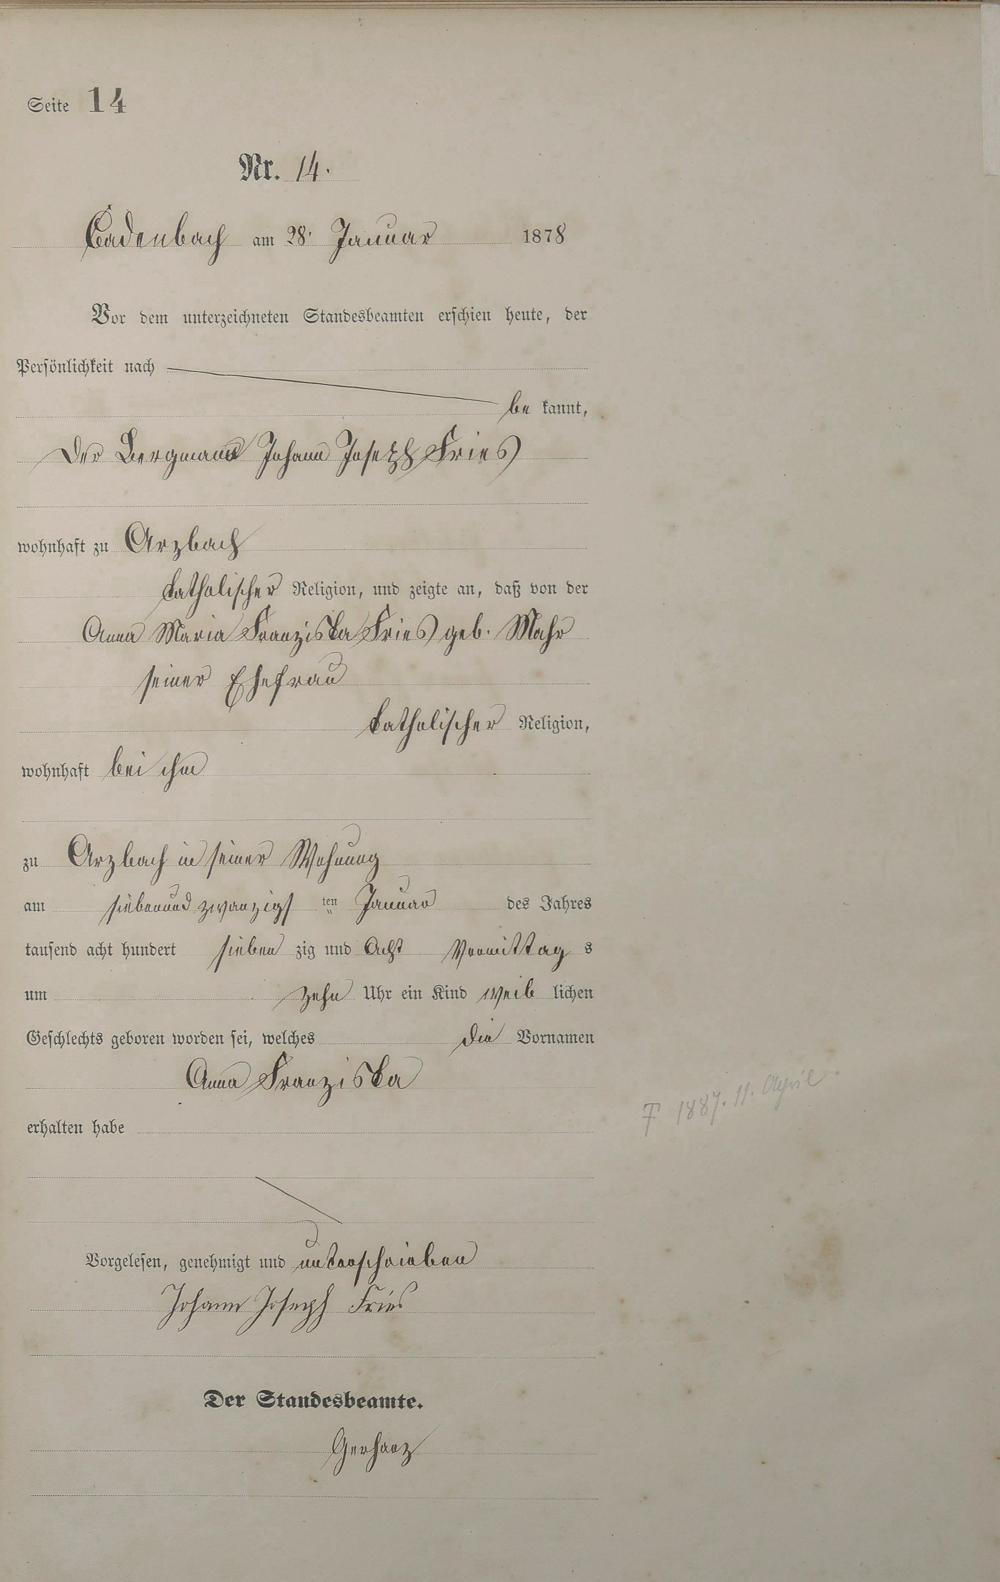 Seite 14
Nr. 14.
Cadenbach am 28. Januar 1878
Vor dem unterzeichneten Standesbeamten erschien heute, der
Persönlichkeit nach
be kannt,
Der Bergmann Johann Joseph Fries
wohnhaft zu Arzbach
katholischer Religion, und zeigte an, daß von der
Anna Maria Franziska Fries geb. Mohr
seiner Ehefrau
katholischer Religion,
wohnhaft bei ihm
zu Arzbach in seiner Wohnung
am siebenundzwanzigs ten Januar des Jahres
tausend acht hundert sieben zig und Acht Vormittag s
um zehn Uhr ein Kind weib lichen
Geschlechts geboren worden sei, welches die Vornamen
Anna Franziska
† 1887. 11. April
erhalten habe
Vorgelesen, genehmigt und unterschrieben
Johann Joseph Fries
Der Standesbeamte.
Gerharz